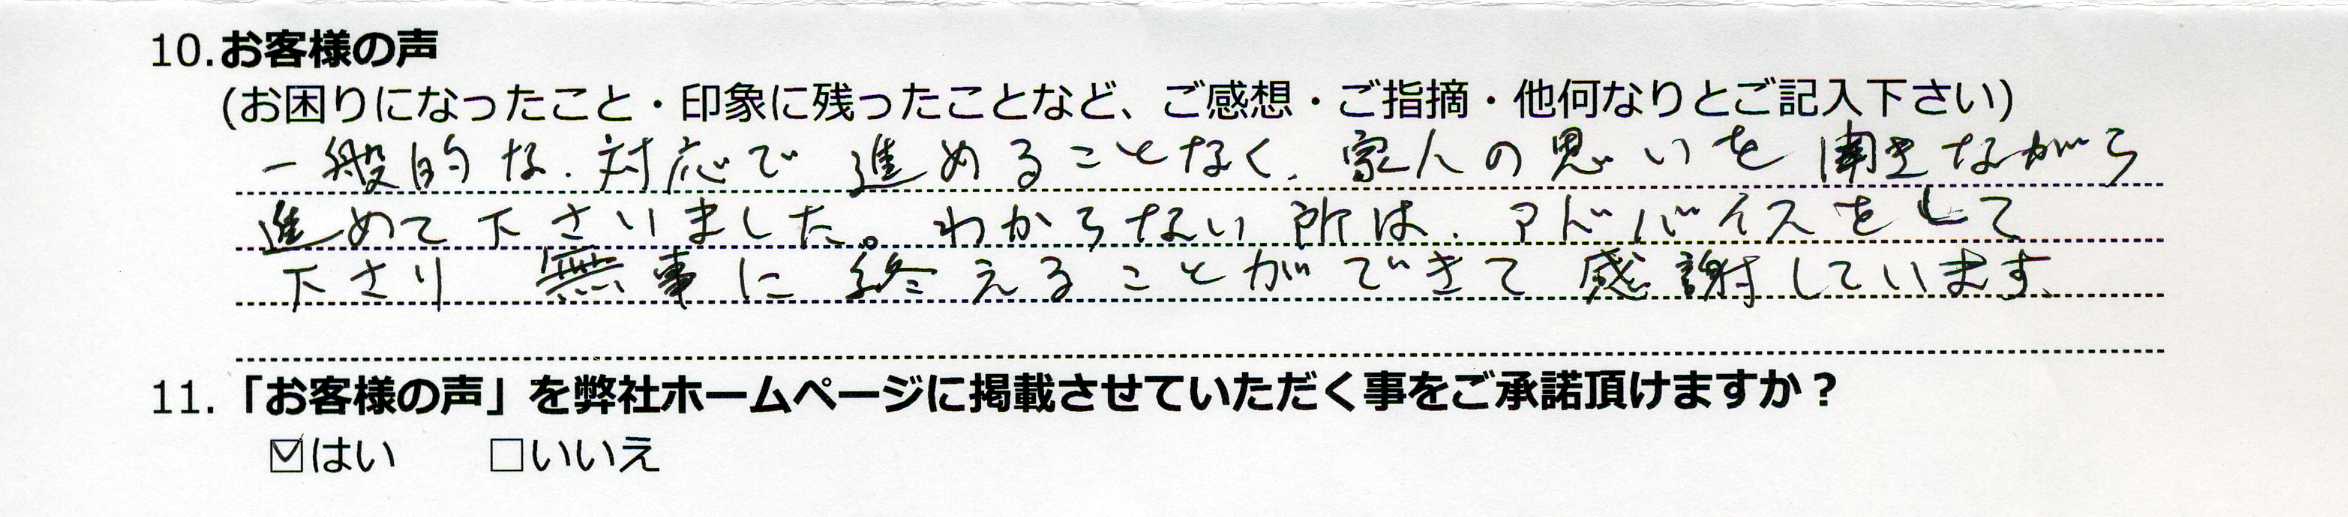 10.お客様の声
(お困りになったこと・印象に残ったことなど、ご感想・ご指摘・他何なりとご記入下さい)
一般的な、対応で進めることなく、家人の思いを聞きながら
進めて下さいました。わからない所は、アドバイスをして
下さり無事に終えることができて感謝しています、
11.「お客様の声」を弊社ホームページに掲載させていただく事をご承諾頂けますか？
☑はい □いいえ